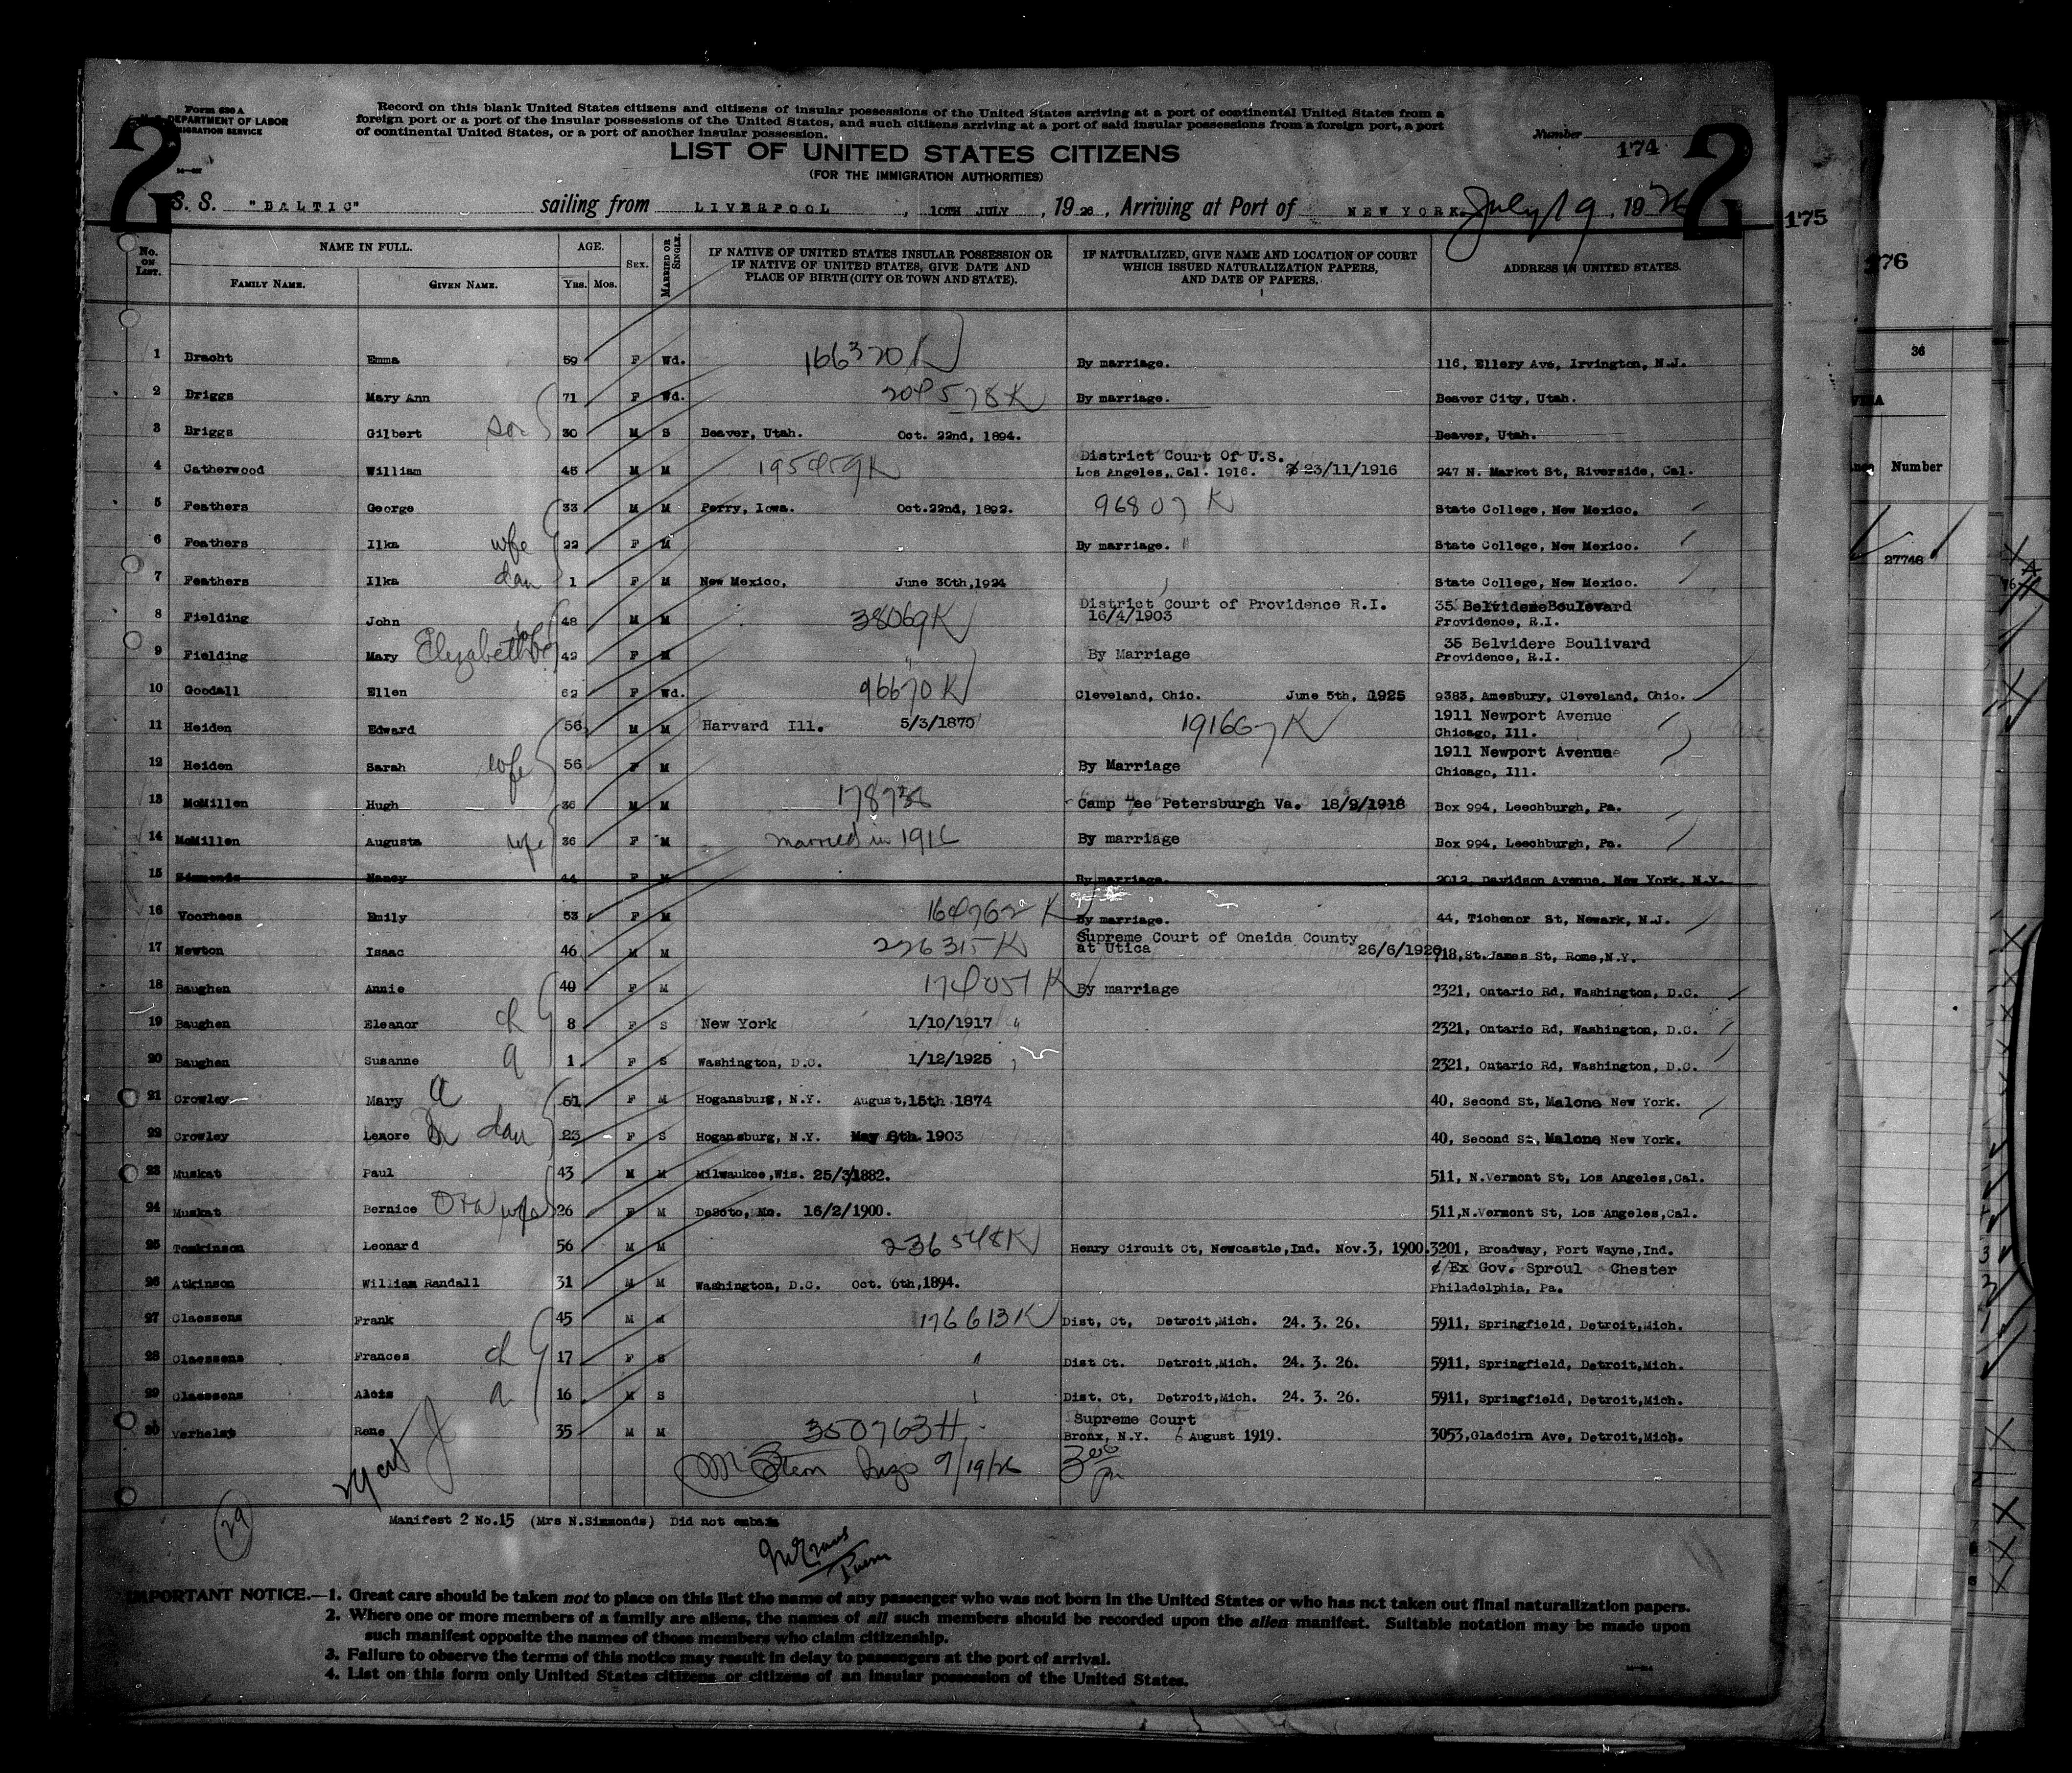 Form 630 A
U. S. DEPARTMENT OF LABOR
IMMIGRATION SERVICE
Record on this blank United States citizens and citizens of insular possessions of the United States arriving at a port of continental United States from a
foreign port or a port of the insular possessions of the United States, and such citizens arriving at a port of said insular possessions from a foreign port, a port
of continental United States, or a port of another insular possession.
Number 174
2 2
LIST OF UNITED STATES CITIZENS
(FOR THE IMMIGRATION AUTHORITIES)
S. S. "BALTIC" sailing from LIVERPOOL, 10TH JULY, 1926, Arriving at Port of NEW YORK. July 19, 1926
175
176
No. ON LIST.
NAME IN FULL.
FAMILY NAME. GIVEN NAME.
AGE.
Yrs. Mos.
SEX.
MARRIED OR SINGLE.
IF NATIVE OF UNITED STATES INSULAR POSSESSION OR
IF NATIVE OF UNITED STATES, GIVE DATE AND
PLACE OF BIRTH (CITY OR TOWN AND STATE).
IF NATURALIZED, GIVE NAME AND LOCATION OF COURT
WHICH ISSUED NATURALIZATION PAPERS,
AND DATE OF PAPERS.
ADDRESS IN UNITED STATES.
36
Number
27748
1 Bracht Emma 59 F Wd. 166370 K By marriage. 116, Ellery Ave, Irvington, N.J.
2 Briggs Mary Ann 71 F Wd. 204578 K By marriage. Beaver City, Utah.
3 Briggs Gilbert son 30 M S Beaver, Utah. Oct. 22nd, 1894. Beaver, Utah.
4 Catherwood William 45 M M 195459 K District Court Of U.S.
Los Angeles, Cal. 1916. 23/11/1916 247 N. Market St, Riverside, Cal.
5 Feathers George 33 M M Perry, Iowa. Oct.22nd, 1892. 96807 K State College, New Mexico.
6 Feathers Ilka wfe 22 F M By marriage. " State College, New Mexico.
7 Feathers Ilka dau 1 F M New Mexico, June 30th,1924 State College, New Mexico.
8 Fielding John 48 M M 38069 K District Court of Providence R.I.
16/4/1903 35 Belvidere Boulevard
Providence, R.I.
9 Fielding Mary Elizabeth wfe 49 F M " By Marriage 35 Belvidere Boulivard
Providence, R.I.
10 Goodall Ellen 62 F Wd. 96670 K Cleveland, Ohio. June 5th, 1925 9383, Amesbury, Cleveland, Ohio.
11 Heiden Edward 56 M M Harvard Ill. 5/3/1870 191667 K 1911 Newport Avenue
Chicago, Ill.
12 Heiden Sarah wfe 56 F M By Marriage 1911 Newport Avenue
Chicago, Ill.
13 McMillen Hugh 36 M M 178738 Camp Lee Petersburgh Va. 18/9/1918 Box 994, Leechburgh, Pa.
14 McMillen Augusta wfe 36 F M married in 1916 By marriage Box 994, Leechburgh, Pa.
15 Simmonds Nancy 44 F M By marriage. 2012, Davidson Avenue, New York, N.Y.
16 Voorhees Emily 53 F M 164762 K By marriage. 44, Tichenor St, Newark, N.J.
17 Newton Isaac 46 M M 226315 K Supreme Court of Oneida County
at Utica 26/6/1920 718,St.James St, Rome,N.Y.
18 Baughen Annie 40 F M 174051 K By marriage 2321, Ontario Rd, Washington, D.C.
19 Baughen Eleanor ch 8 F S New York 1/10/1917 " 2321, Ontario Rd, Washington, D.C.
20 Baughen Susanne 1 F S Washington, D.C. 1/12/1925 2321, Ontario Rd, Washington, D.C.
21 Crowley Mary 51 F M Hogansburg, N.Y. August,15th 1874 40, Second St, Malone New York.
22 Crowley Lenore dau 23 F S Hogansburg, N.Y. May 8th 1903 40, Second St, Malone New York.
23 Muskat Paul 43 M M Milwaukee,Wis. 25/3/1882. 511, N.Vermont St, Los Angeles,Cal.
24 Muskat Bernice wfe 26 F M DeSoto, Mo. 16/2/1900. 511,N.Vermont St, Los Angeles,Cal.
25 Tomkinson Leonard 56 M M 236548 K Henry Circuit Ct, Newcastle,Ind. Nov.3, 1900. 3201, Broadway, Fort Wayne,Ind.
26 Atkinson William Randall 31 M M Washington, D.C. Oct. 6th,1894. c/Ex Gov. Sproul Chester
Philadelphia, Pa.
27 Claessens Frank 45 M M 176613 K Dist, Ct, Detroit,Mich. 24. 3. 26. 5911, Springfield, Detroit,Mich.
28 Claessens Frances ch 17 F S " Dist Ct. Detroit,Mich. 24. 3. 26. 5911, Springfield, Detroit,Mich.
29 Claessens Alois 16 M S Dist. Ct, Detroit,Mich. 24. 3. 26. 5911, Springfield, Detroit,Mich.
30 Verhelst Rene 35 M M 350763 H Supreme Court
Bronx, N.Y. 6 August 1919. 3053,Gladoirn Ave, Detroit,Mich.
29
Manifest 2 No.15 (Mrs N.Simmonds) Did not embark
IMPORTANT NOTICE.—1. Great care should be taken not to place on this list the name of any passenger who was not born in the United States or who has not taken out final naturalization papers.
2. Where one or more members of a family are aliens, the names of all such members should be recorded upon the alien manifest. Suitable notation may be made upon
such manifest opposite the names of those members who claim citizenship.
3. Failure to observe the terms of this notice may result in delay to passengers at the port of arrival.
4. List on this form only United States citizens or citizens of an insular possession of the United States.